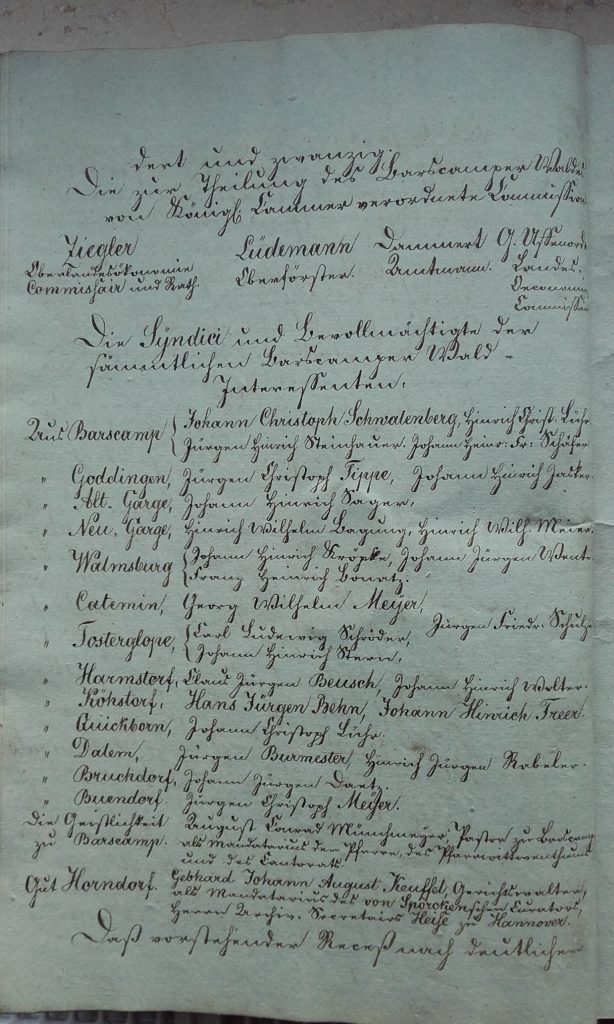 dert und zwanzig.
Die zur Theilung des Barscamper Waldes
von Königl: Cammer verordnete Commission
Ziegler Lüdemann Dammert G. Ussenord
Oberlandesökonomie Oberförster. Amtmann. Landes-
Commissair und Rath. Oeconomie
Commissair
Die Syndici und Bevollmächtigte der
sämmtlichen Barscamper Wald-
Interessenten:
Aus Barscamp { Johann Christoph Schwalenberg, Hinrich Christ: Lühr
Jürgen Hinrich Steinhauer. Johann Heinr: Fr: Schäfer
" Goddingen, Jürgen Christoph Tippe, Johann Hinrich Jasker
" Alt. Garge, Johann Hinrich Sager,
" Neu. Garge, Hinrich Wilhelm Bagung, Hinrich Wilh. Meier.
" Walmsburg { Johann Hinrich Kröpke, Johann Jürgen Wente
Franz Heinrich Bonatz.
" Catemin, Georg Wilhelm Meyer,
" Tosterglope, { Carl Ludewig Schröder, Jürgen Friedr: Schulze
Johann Hinrich Stern,
" Harmstorf, Claus Jürgen Beusch, Johann Hinrich Wolter.
" Köhstorf, Hans Jürgen Behn, Johann Hinrich Freer-
" Quickborn, Johann Christoph Lühr.
" Dalem, Jürgen Burmester, Hinrich Jürgen Rabeler.
" Bruchdorf, Johann Jürgen Daetz.
" Buendorf. Jürgen Christoph Meyer.
Die Geistlichkeit August Conrad Münchmeyer, Pastor zu Barscamp
zu Barscamp. als Mandatarius der Pfarre, des Pfarrwittwenthums
und des Cantorats.
Gut Horndorf. Gebhard Johann August Keuffel, Gerichtsverwalter,
als Mandatarius des von Spörckenschen Curators,
Herrn Archiv-Secretairs Heise zu Hannover.
Daß vorstehender Receß nach deutlicher